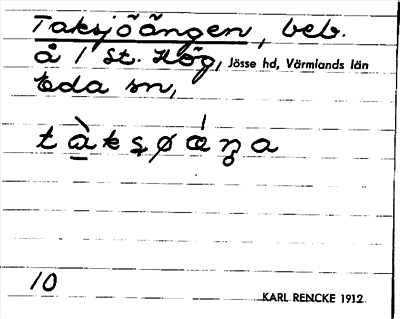 Taksjöängen, beb.
å 1 St. Hög, Jösse hd, Värmlands län
Eda sn,
10
KARL RENCKE 1912